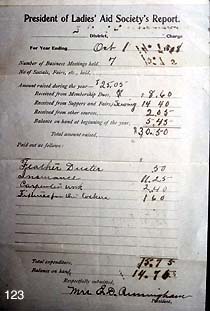 President of Ladies' Aid Society's Report.
District, Charge
For Year Ending Oct 1 1908
Number of Business Meetings held, 7
No. of Socials, Fairs, etc., held, 2
Amount raised during the year— $25.05
Received from Membership Dues, $ 8.60
Received from Suppers and Fairs, Sewing 14.40
Received from other sources, 2.05
Balance on hand at beginning of year, 5.45
Total amount raised, $30.50
Paid out as follows:
Feather Duster 50
Insurance 11.25
Carpenter work 2.40
Fixtures for the lockers 1.60
Total expenditures, 15.75
Balance on hand, 14.75
Respectfully submitted,
Mrs Cunningham
President.
123